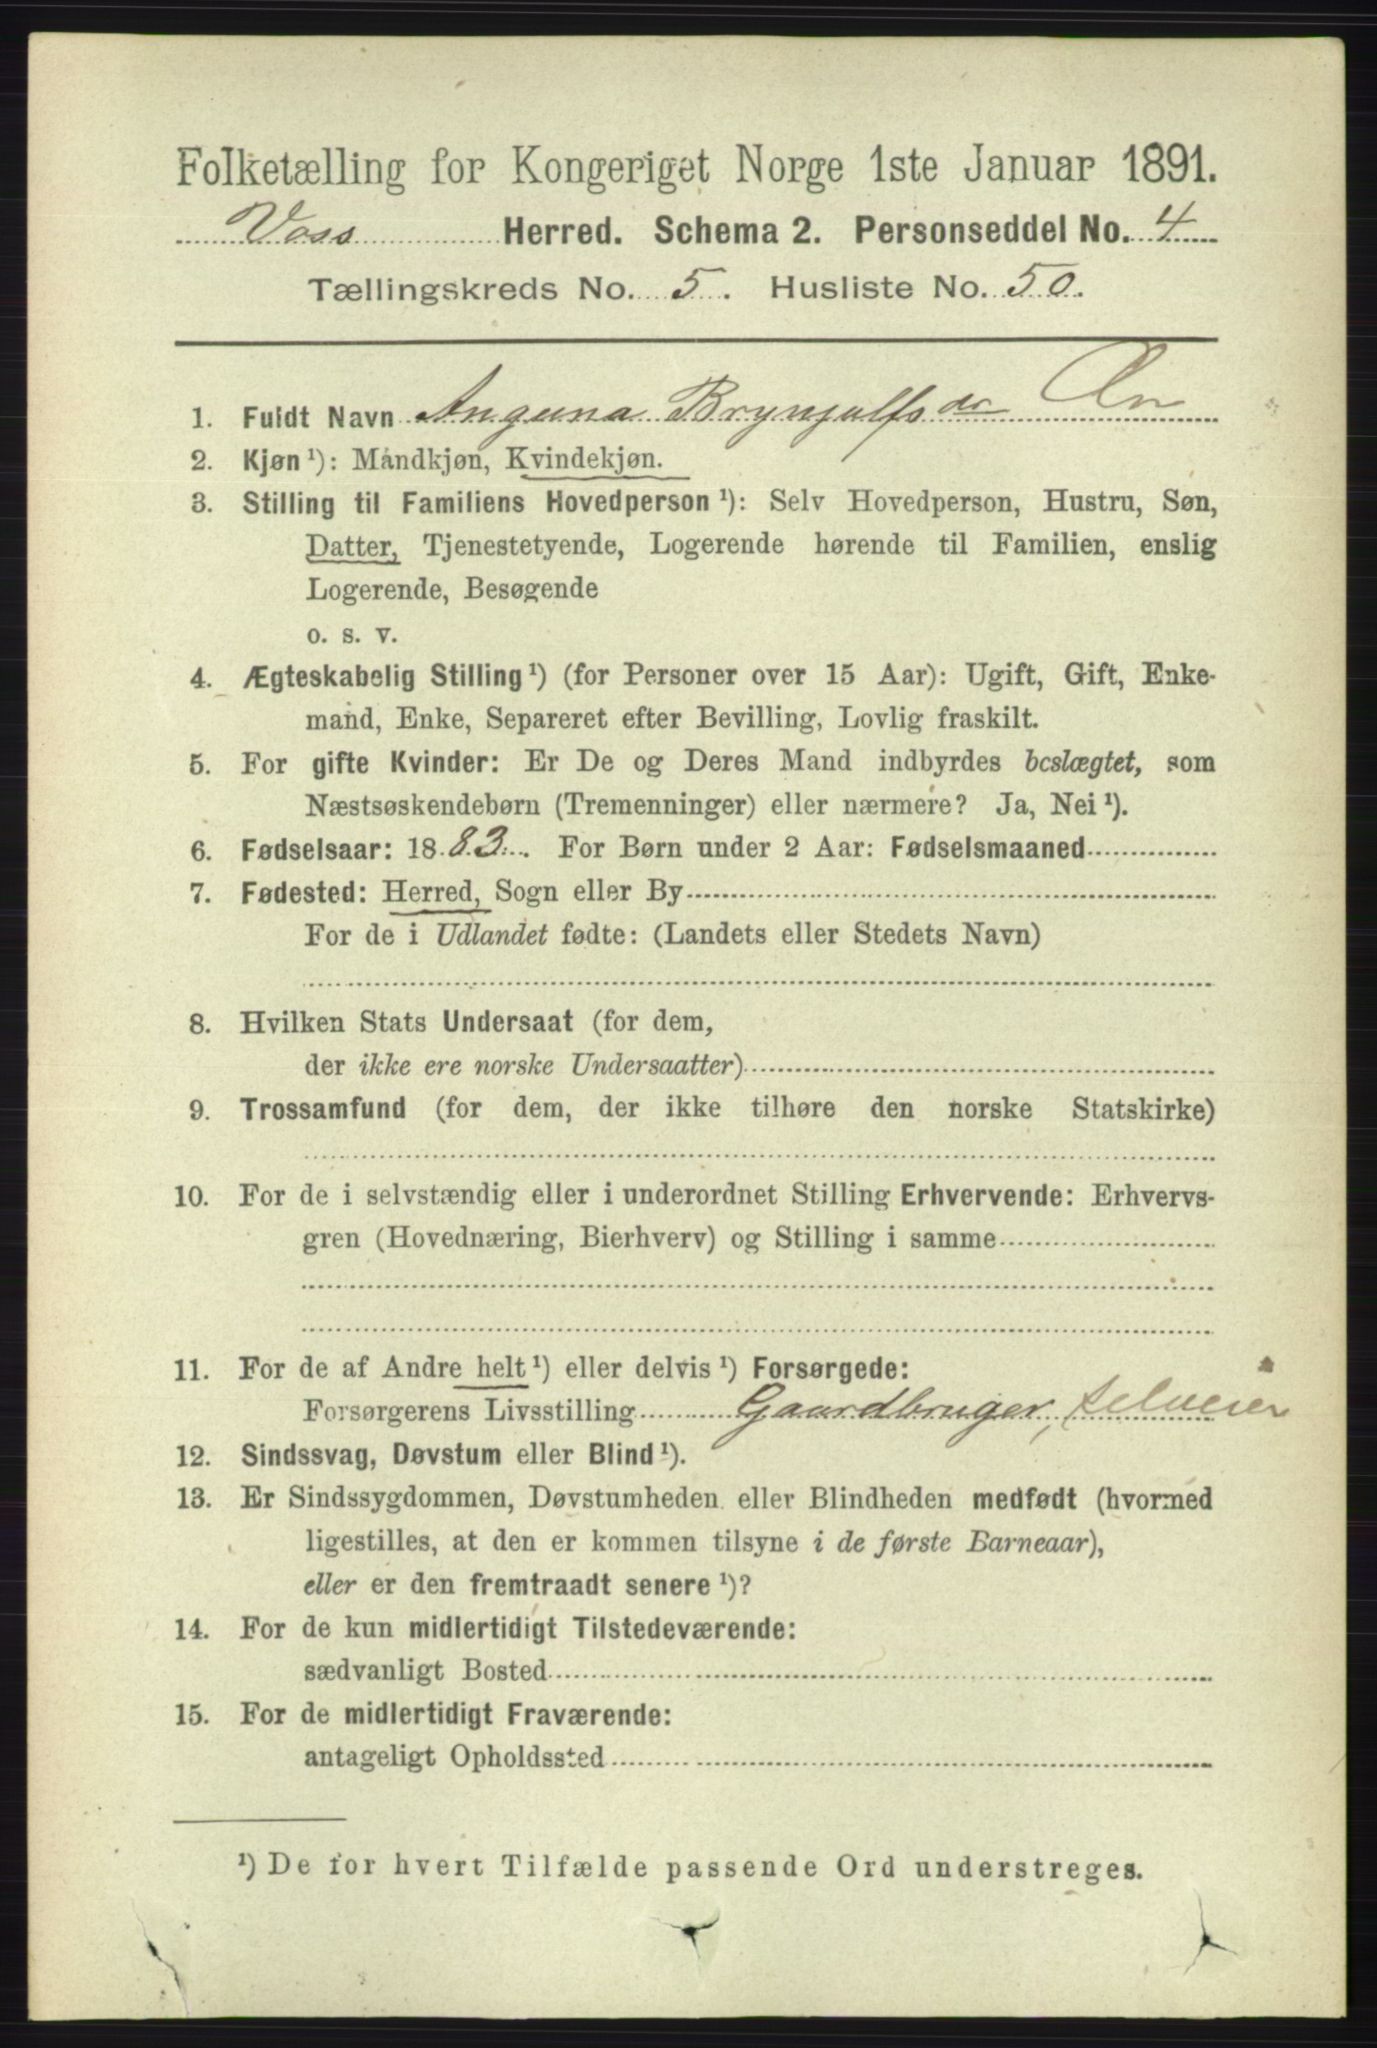 Folketælling for Kongeriget Norge 1ste Januar 1891.
Voss Herred. Schema 2. Personseddel No. 4
Tællingskreds No. 5. Husliste No. 50.
1. Fuldt Navn Anguna Brynjulfsdr
2. Kjøn ¹): Mandkjøn, Kvindekjøn.
3. Stilling til Familiens Hovedperson ¹): Selv Hovedperson, Hustru, Søn,
Datter, Tjenestetyende, Logerende hørende til Familien, enslig
Logerende, Besøgende
o. s. v.
4. Ægteskabelig Stilling ¹) (for Personer over 15 Aar): Ugift, Gift, Enke-
mand, Enke, Separeret efter Bevilling, Lovlig fraskilt.
5. For gifte Kvinder: Er De og Deres Mand indbyrdes beslægtet, som
Næstsøskendebørn (Tremenninger) eller nærmere? Ja, Nei ¹).
6. Fødselsaar: 1883. For Børn under 2 Aar: Fødselsmaaned
7. Fødested: Herred, Sogn eller By
For de i Udlandet fødte: (Landets eller Stedets Navn)
8. Hvilken Stats Undersaat (for dem,
der ikke ere norske Undersaatter)
9. Trossamfund (for dem, der ikke tilhøre den norske Statskirke)
10. For de i selvstændig eller i underordnet Stilling Erhvervende: Erhvervs-
gren (Hovednæring, Bierhverv) og Stilling i samme
11. For de af Andre helt ¹) eller delvis ¹) Forsørgede:
Forsørgerens Livsstilling Gaardbruger, selveier
12. Sindssvag, Døvstum eller Blind ¹).
13. Er Sindssygdommen, Døvstumheden eller Blindheden medfødt (hvormed
ligestilles, at den er kommen tilsyne i de første Barneaar),
eller er den fremtraadt senere ¹)?
14. For de kun midlertidigt Tilstedeværende:
sædvanligt Bosted
15. For de midlertidigt Fraværende:
antageligt Opholdssted
¹) De for hvert Tilfælde passende Ord understreges.